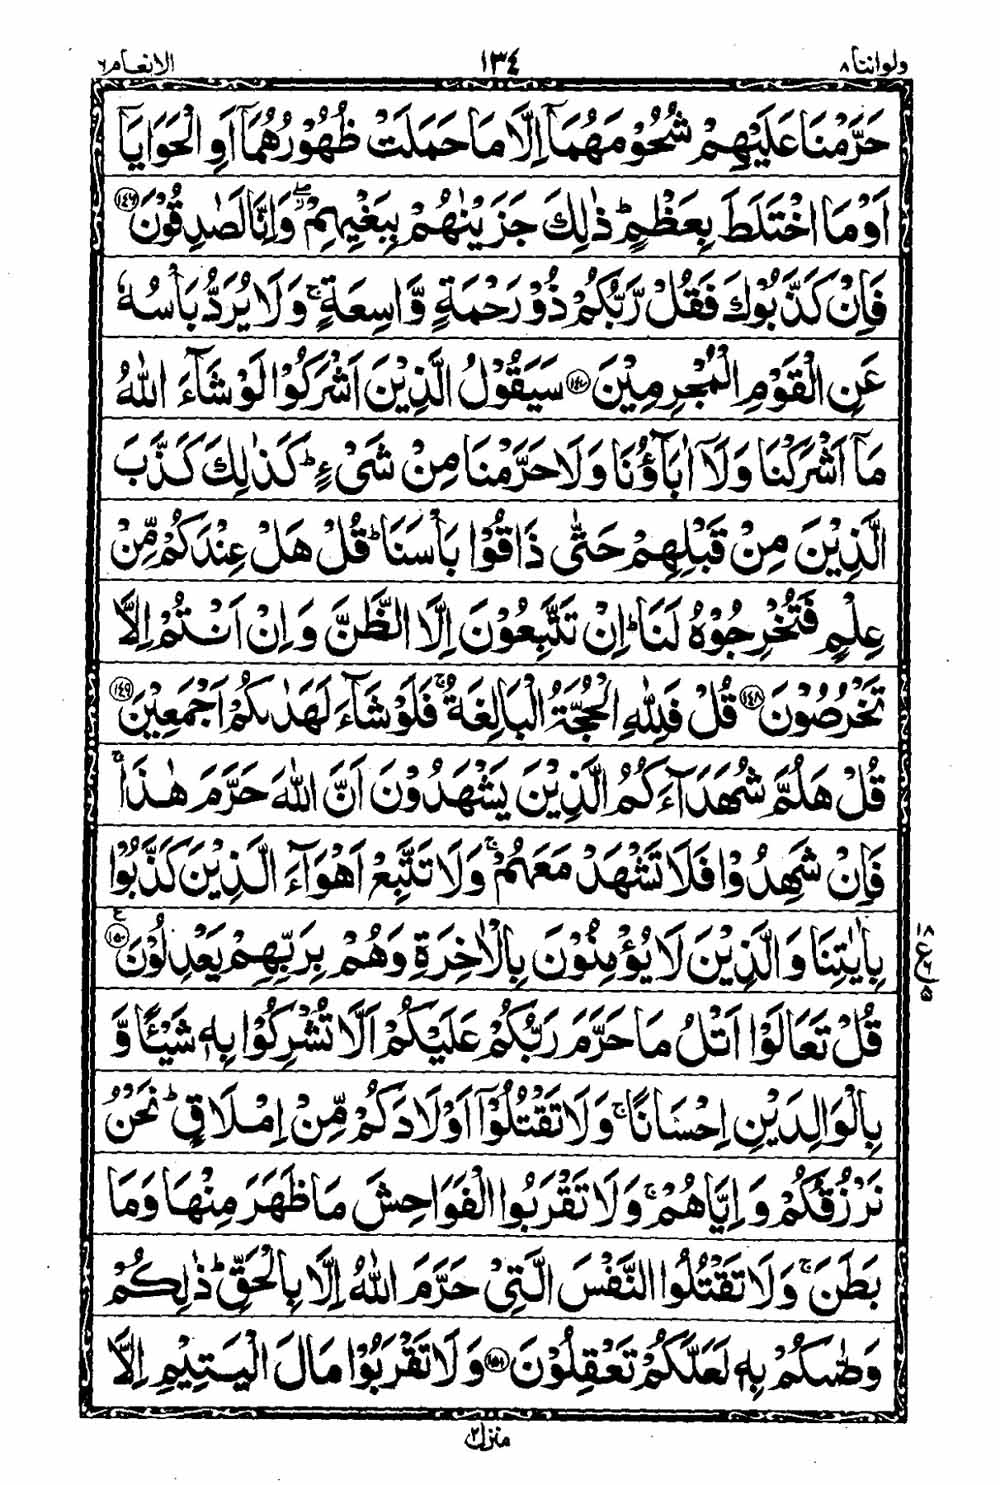 ولواننا ٨ ١٣٤ الانعام ٦
حَرَّمْنَا عَلَيْهِمْ شُحُوْمَهُمَاۤ اِلَّا مَا حَمَلَتْ ظُهُوْرُهُمَاۤ اَوِ الْحَوَايَاۤ
اَوْ مَا اخْتَلَطَ بِعَظْمٍ ؕ ذٰلِكَ جَزَيْنٰهُمْ بِبَغْيِهِمْ ۖ وَاِنَّا لَصٰدِقُوْنَ ﴿١٤٦﴾
فَاِنْ كَذَّبُوْكَ فَقُلْ رَّبُّكُمْ ذُوْ رَحْمَةٍ وَّاسِعَةٍ ۚ وَلَا يُرَدُّ بَاْسُهٗ
عَنِ الْقَوْمِ الْمُجْرِمِيْنَ ﴿١٤٧﴾ سَيَقُوْلُ الَّذِيْنَ اَشْرَكُوْا لَوْ شَآءَ اللّٰهُ
مَاۤ اَشْرَكْنَا وَلَاۤ اٰبَآؤُنَا وَلَا حَرَّمْنَا مِنْ شَيْءٍ ؕ كَذٰلِكَ كَذَّبَ
الَّذِيْنَ مِنْ قَبْلِهِمْ حَتّٰى ذَاقُوْا بَاْسَنَا ؕ قُلْ هَلْ عِنْدَكُمْ مِّنْ
عِلْمٍ فَتُخْرِجُوْهُ لَنَا ؕ اِنْ تَتَّبِعُوْنَ اِلَّا الظَّنَّ وَاِنْ اَنْتُمْ اِلَّا
تَخْرُصُوْنَ ﴿١٤٨﴾ قُلْ فَلِلّٰهِ الْحُجَّةُ الْبَالِغَةُ ۚ فَلَوْ شَآءَ لَهَدٰىكُمْ اَجْمَعِيْنَ ﴿١٤٩﴾
قُلْ هَلُمَّ شُهَدَآءَكُمُ الَّذِيْنَ يَشْهَدُوْنَ اَنَّ اللّٰهَ حَرَّمَ هٰذَا ۚ
فَاِنْ شَهِدُوْا فَلَا تَشْهَدْ مَعَهُمْ ۚ وَلَا تَتَّبِعْ اَهْوَآءَ الَّذِيْنَ كَذَّبُوْا
بِاٰيٰتِنَا وَالَّذِيْنَ لَا يُؤْمِنُوْنَ بِالْاٰخِرَةِ وَهُمْ بِرَبِّهِمْ يَعْدِلُوْنَ ﴿١٥٠﴾ ع
قُلْ تَعَالَوْا اَتْلُ مَا حَرَّمَ رَبُّكُمْ عَلَيْكُمْ اَلَّا تُشْرِكُوْا بِهٖ شَيْـًٔا وَّ
بِالْوَالِدَيْنِ اِحْسَانًا ۚ وَلَا تَقْتُلُوْۤا اَوْلَادَكُمْ مِّنْ اِمْلَاقٍ ؕ نَحْنُ
نَرْزُقُكُمْ وَاِيَّاهُمْ ۚ وَلَا تَقْرَبُوا الْفَوَاحِشَ مَا ظَهَرَ مِنْهَا وَمَا
بَطَنَ ۚ وَلَا تَقْتُلُوا النَّفْسَ الَّتِيْ حَرَّمَ اللّٰهُ اِلَّا بِالْحَقِّ ؕ ذٰلِكُمْ
وَصّٰىكُمْ بِهٖ لَعَلَّكُمْ تَعْقِلُوْنَ ﴿١٥١﴾ وَلَا تَقْرَبُوْا مَالَ الْيَتِيْمِ اِلَّا
منزل ٢